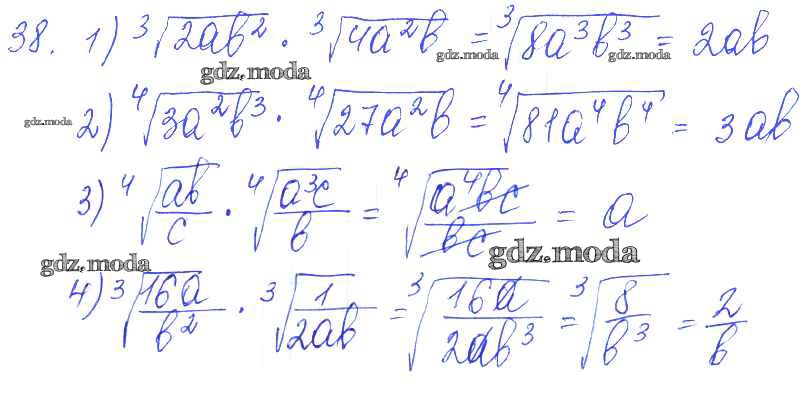 38. 1) ∛(2ab²) · ∛(4a²b) = ∛(8a³b³) = 2ab
gdz.moda gdz.moda
gdz.moda
gdz.moda 2) ∜(3a²b³) · ∜(27a²b) = ∜(81a⁴b⁴) = 3ab
3) ∜(ab/c) · ∜(a³c/b) = ∜(a⁴bc/bc) = a
gdz.moda gdz.moda
4) ∛(16a/b²) · ∛(1/2ab) = ∛(16a/2ab³) = ∛(8/b³) = 2/b